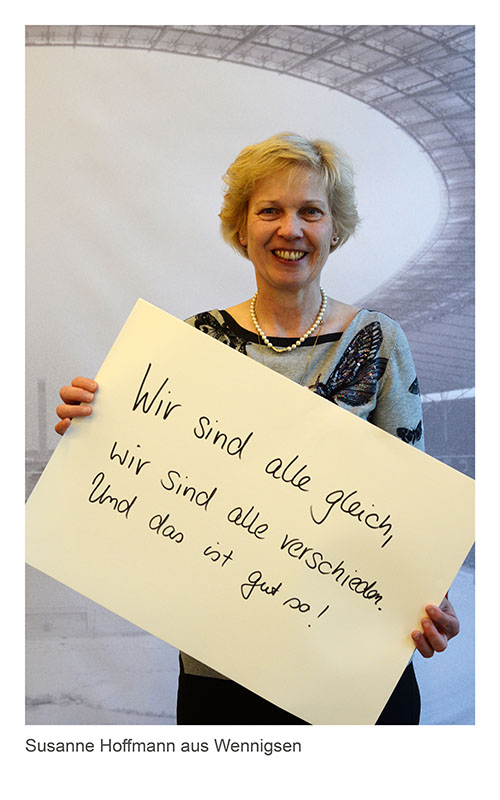 Wir sind alle gleich,
wir sind alle verschieden.
Und das ist gut so!
Susanne Hoffmann aus Wennigsen